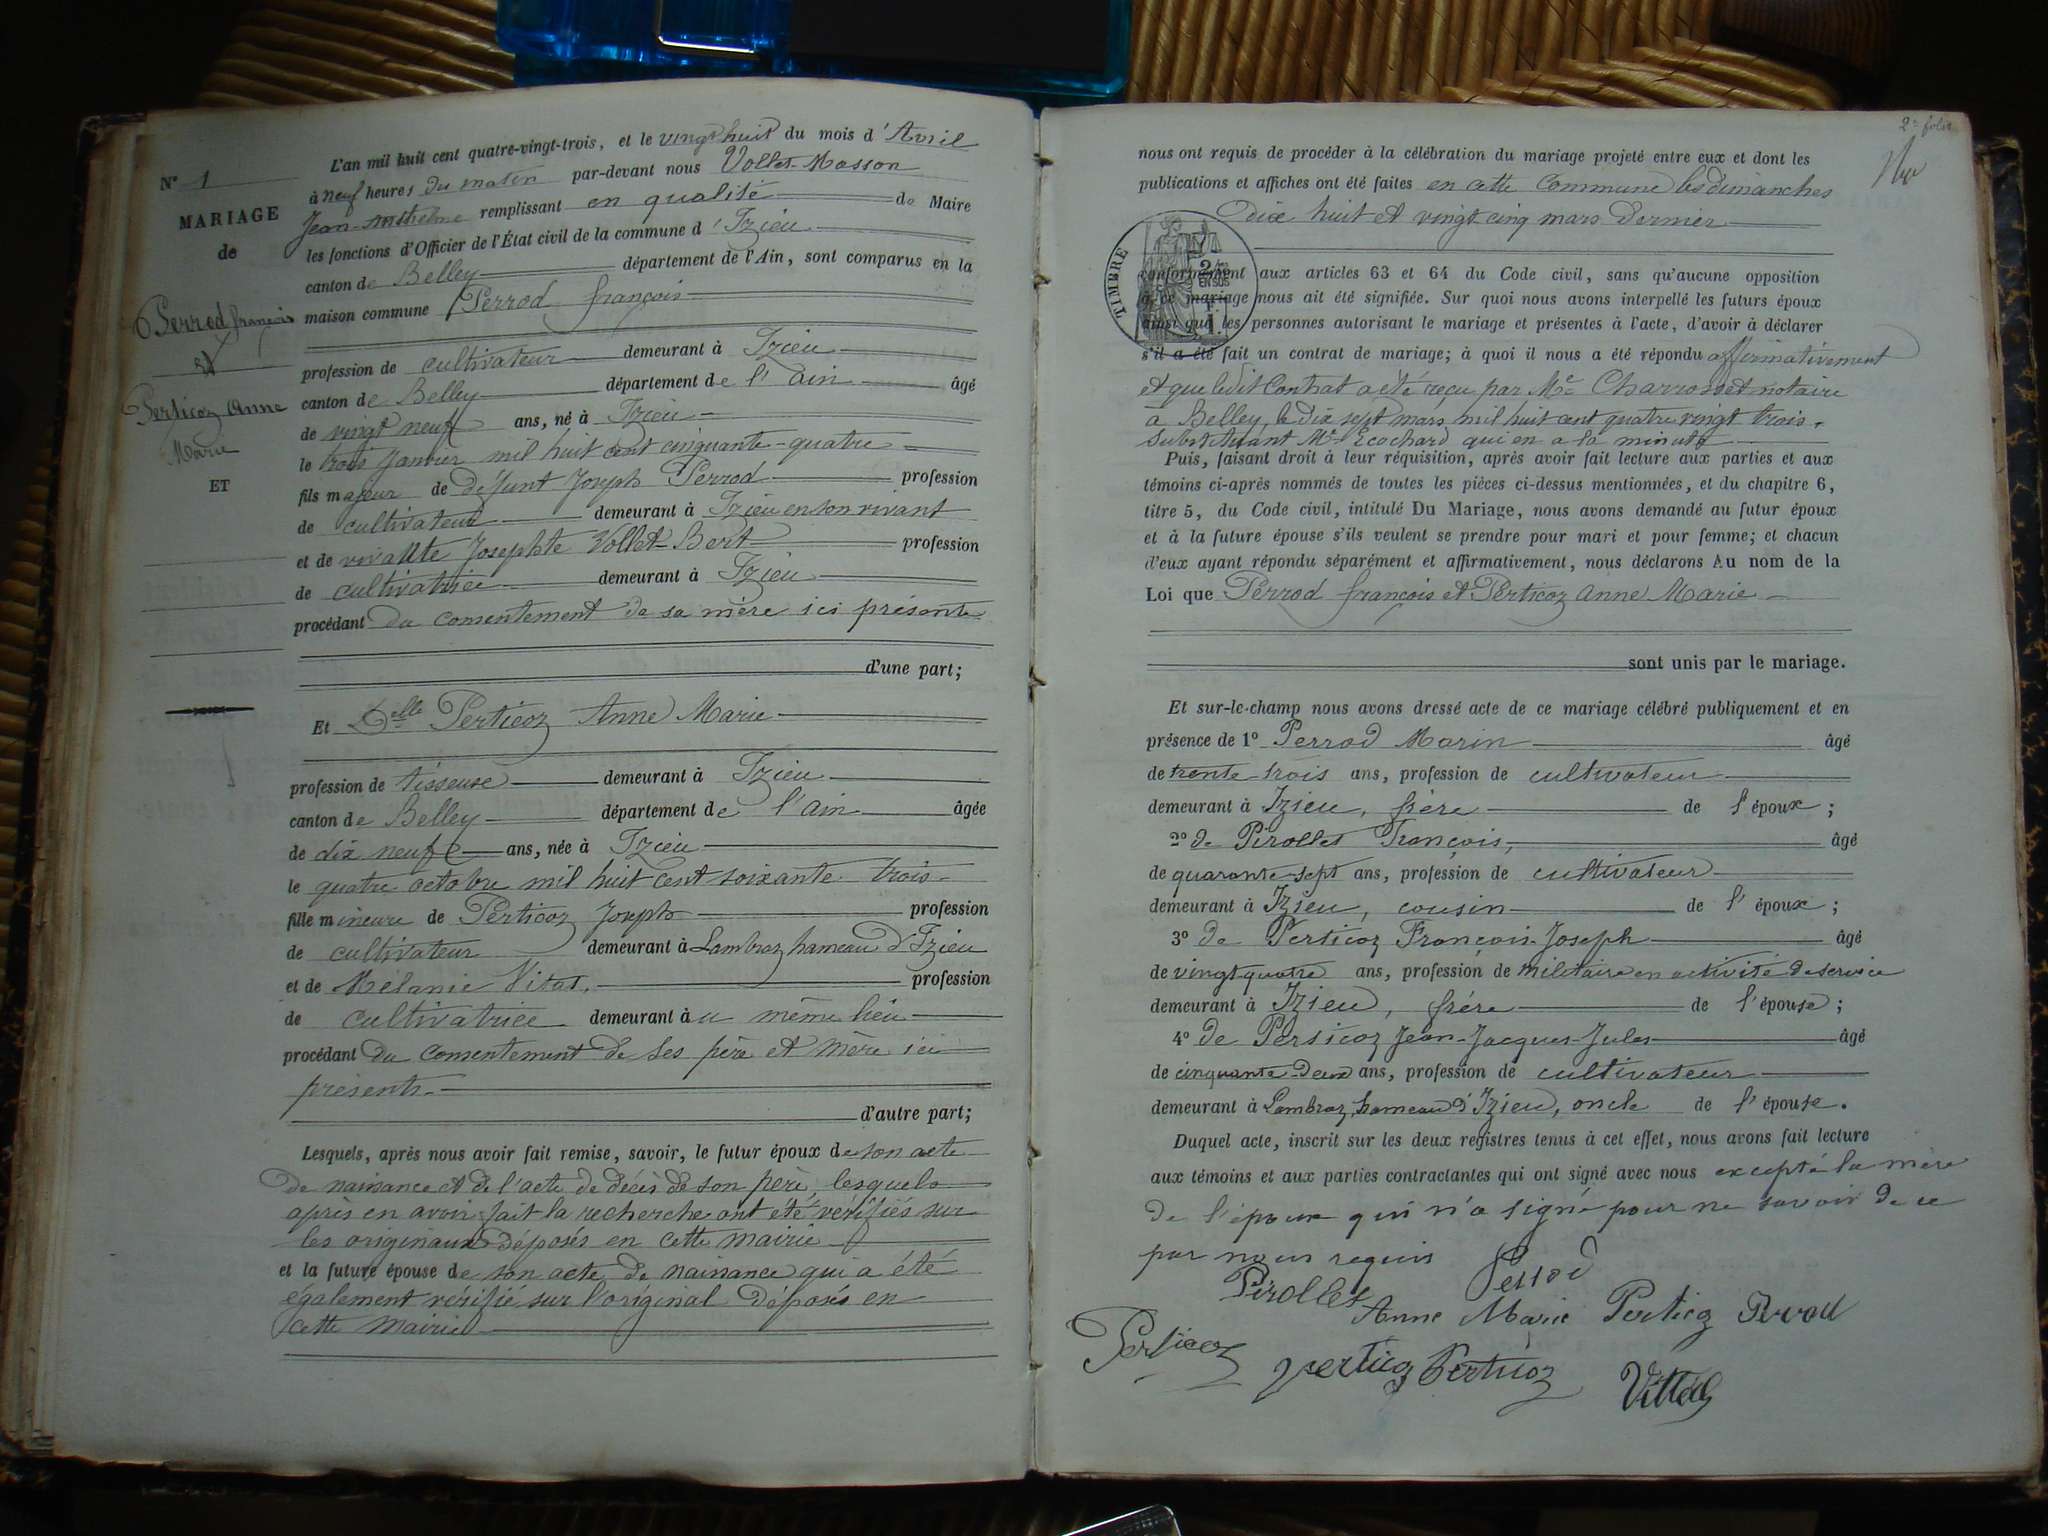 N° 1
MARIAGE
de
Perrod françois
et
Perticoz Anne
Marie
ET
L'an mil huit cent quatre-vingt-trois, et le vingt huit du mois d'Avril
à neuf heures du matin par-devant nous Vollet-Masson
Jean-Anthelme remplissant en qualité de Maire
les fonctions d'Officier de l'État civil de la commune d'Izieu
canton de Belley département de l'Ain, sont comparus en la
maison commune Perrod françois
profession de cultivateur demeurant à Izieu
canton de Belley département de l'ain âgé
de vingt neuf ans, né à Izieu
le trois Janvier mil huit cent cinquante-quatre
fils majeur de défunt Joseph Perrod profession
de cultivateur demeurant à Izieu en son vivant
et de vivante Josephte Vollet-Bert profession
de cultivatrice demeurant à Izieu
procédant du consentement de sa mère ici présente
d'une part;
Et Delle Perticoz Anne Marie
profession de tisseuse demeurant à Izieu
canton de Belley département de l'ain âgée
de dix neuf ans, née à Izieu
le quatre octobre mil huit cent soixante trois
fille mineure de Perticoz Joseph profession
de cultivateur demeurant à Lambraz hameau d'Izieu
et de Mélanie Vitat profession
de cultivatrice demeurant au même lieu
procédant du consentement de ses père et mère ici
présents
d'autre part;
Lesquels, après nous avoir fait remise, savoir, le futur époux de son acte
de naissance et de l'acte de décès de son père, lesquels
après en avoir fait la recherche ont été vérifiés sur
les originaux déposés en cette mairie
et la future épouse de son acte de naissance qui a été
également vérifié sur l'original déposés en
cette mairie
2e folio
nous ont requis de procéder à la célébration du mariage projeté entre eux et dont les
publications et affiches ont été faites en cette Commune les dimanches
dix huit et vingt cinq mars dernier
TIMBRE
2/10 EN SUS
conformément aux articles 63 et 64 du Code civil, sans qu'aucune opposition
à ce mariage nous ait été signifiée. Sur quoi nous avons interpellé les futurs époux
ainsi que les personnes autorisant le mariage et présentes à l'acte, d'avoir à déclarer
s'il a été fait un contrat de mariage; à quoi il nous a été répondu affirmativement
et que ledit Contrat a été reçu par Me Charrosset notaire
à Belley, le dix sept mars mil huit cent quatre vingt trois,
substituant Me Ecochard qui en a la minute
Puis, faisant droit à leur réquisition, après avoir fait lecture aux parties et aux
témoins ci-après nommés de toutes les pièces ci-dessus mentionnées, et du chapitre 6,
titre 5, du Code civil, intitulé Du Mariage, nous avons demandé au futur époux
et à la future épouse s'ils veulent se prendre pour mari et pour femme; et chacun
d'eux ayant répondu séparément et affirmativement, nous déclarons Au nom de la
Loi que Perrod françois et Perticoz Anne Marie
sont unis par le mariage.
Et sur-le-champ nous avons dressé acte de ce mariage célébré publiquement et en
présence de 1° Perrod Marin âgé
de trente trois ans, profession de cultivateur
demeurant à Izieu, frère de l'époux;
2° de Pirollet François, âgé
de quarante-sept ans, profession de cultivateur
demeurant à Izieu, cousin de l'époux;
3° de Perticoz François-Joseph âgé
de vingt quatre ans, profession de militaire en activité de service
demeurant à Izieu, frère de l'épouse;
4° de Persicoz Jean-Jacques-Jules âgé
de cinquante-deux ans, profession de cultivateur
demeurant à Lambraz, hameau d'Izieu, oncle de l'épouse.
Duquel acte, inscrit sur les deux registres tenus à cet effet, nous avons fait lecture
aux témoins et aux parties contractantes qui ont signé avec nous excepté la mère
de l'époux qui n'a signé pour ne savoir de ce
par nous requis Perrod
Pirollet
Anne Marie Perticoz Perrod
Perticoz perticoz Perticoz